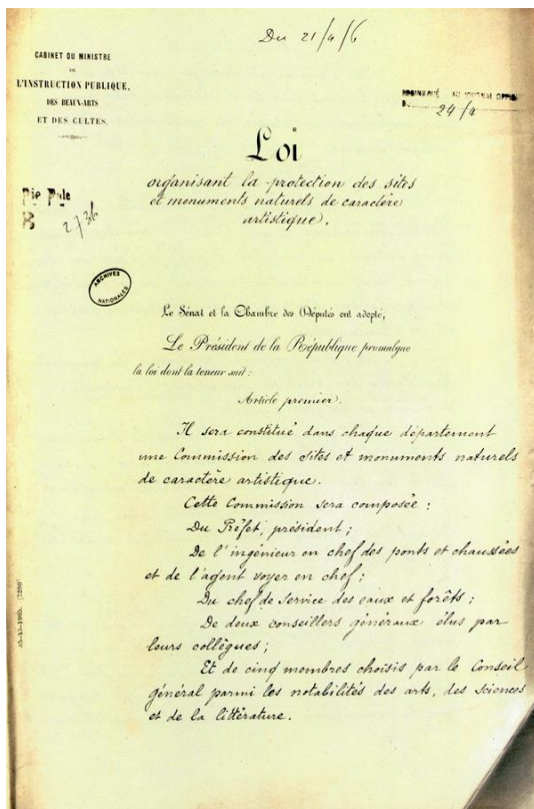 Du 21/4/6
CABINET DU MINISTRE
DE
L'INSTRUCTION PUBLIQUE,
DES BEAUX-ARTS
ET DES CULTES.
AU JOURNAL OFFICIEL
24/4
Loi
organisant la protection des sites
et monuments naturels de caractère
artistique.
B 2736
ARCHIVES
NATIONALES
Le Sénat et la Chambre des Députés ont adopté,
Le Président de la République promulgue
la loi dont la teneur suit :
Article premier.
Il sera constitué dans chaque département
une Commission des sites et monuments naturels
de caractère artistique.
Cette Commission sera composée :
Du Préfet, président ;
De l'ingénieur en chef des ponts et chaussées
et de l'agent voyer en chef ;
Du chef de Service des eaux et forêts ;
De deux conseillers généraux élus par
leurs collègues ;
Et de cinq membres choisis par le Conseil
général parmi les notabilités des arts, des sciences
et de la littérature.